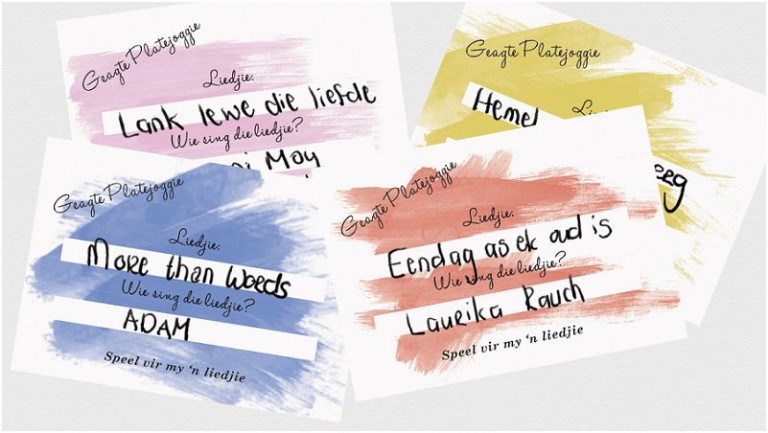 Geagte Platejoggie
Liedjie:
Lank lewe die liefde
Wie sing die liedjie?
Moy
Geagte Platejoggie
Hemel
Geagte Platejoggie
Liedjie:
More than Words
Wie sing die liedjie?
ADAM
Speel vir my 'n liedjie
Geagte Platejoggie
Liedjie:
Eendag as ek oud is
Wie sing die liedjie?
Laurika Rauch
Speel vir my 'n liedjie